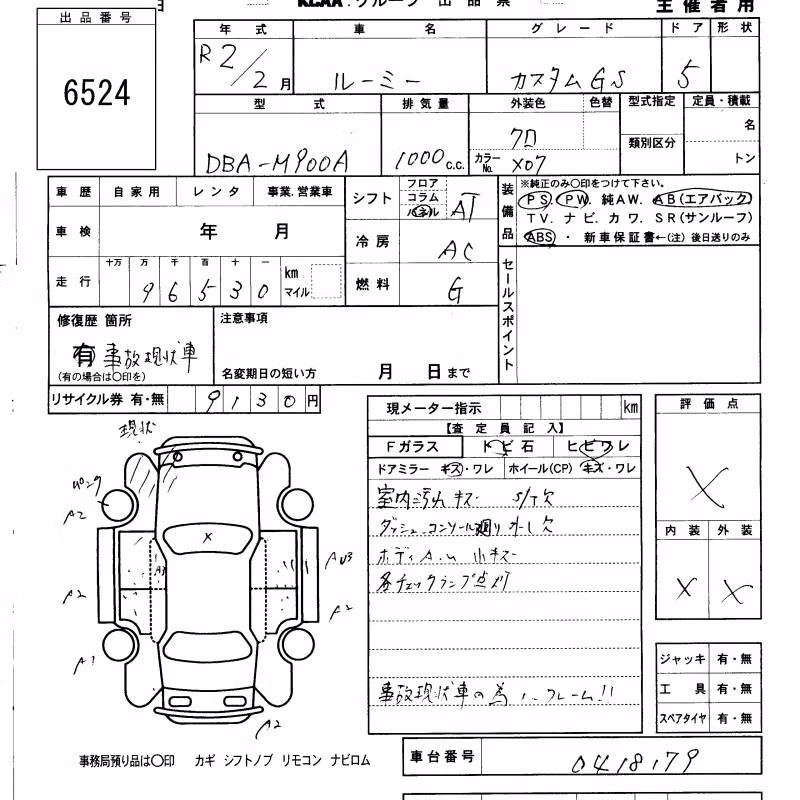 出品番号
6524
KCAA.グループ 出品票
主催者用
年式 車名 グレード ドア 形状
R2/2月 ルーミー カスタムGS 5
型式 排気量 外装色 色替 型式指定 定員・積載
DBA-M900A 1000c.c. クロ 名
カラーNo. X07 類別区分 トン
車歴 自家用 レンタ 事業.営業車
シフト フロア コラム パネル AT
装備品 ※純正のみ〇印をつけて下さい。
PS. PW. 純AW. AB(エアバック)
TV. ナビ. カワ. SR(サンルーフ)
ABS ・ 新車保証書←(注) 後日送りのみ
車検 年 月
冷房 AC
走行 十万 万 千 百 十 一 km マイル
9 6 5 3 0
燃料 G
セールスポイント
修復歴 箇所
有 事故現状車
(有の場合は〇印を)
注意事項
名変期日の短い方 月 日まで
リサイクル券 有・無 9 1 3 0 円
現メーター指示 km
【査定員記入】
Fガラス トビ石 ヒビワレ
ドアミラー キズ・ワレ ホイール(CP) キズ・ワレ
室内汚れ キズ S/T欠
ダッシュ.コンソール廻り外し欠
ボディA.U 小キズ
各チェックランプ点灯
事故現状車の為 ノークレーム!!
評価点
X
内装 外装
X X
ジャッキ 有・無
工具 有・無
スペアタイヤ 有・無
現状
パンク
A2
X
AU3
A2
A2
A1
A2
事務局預り品は〇印 カギ シフトノブ リモコン ナビロム
車台番号 0418179